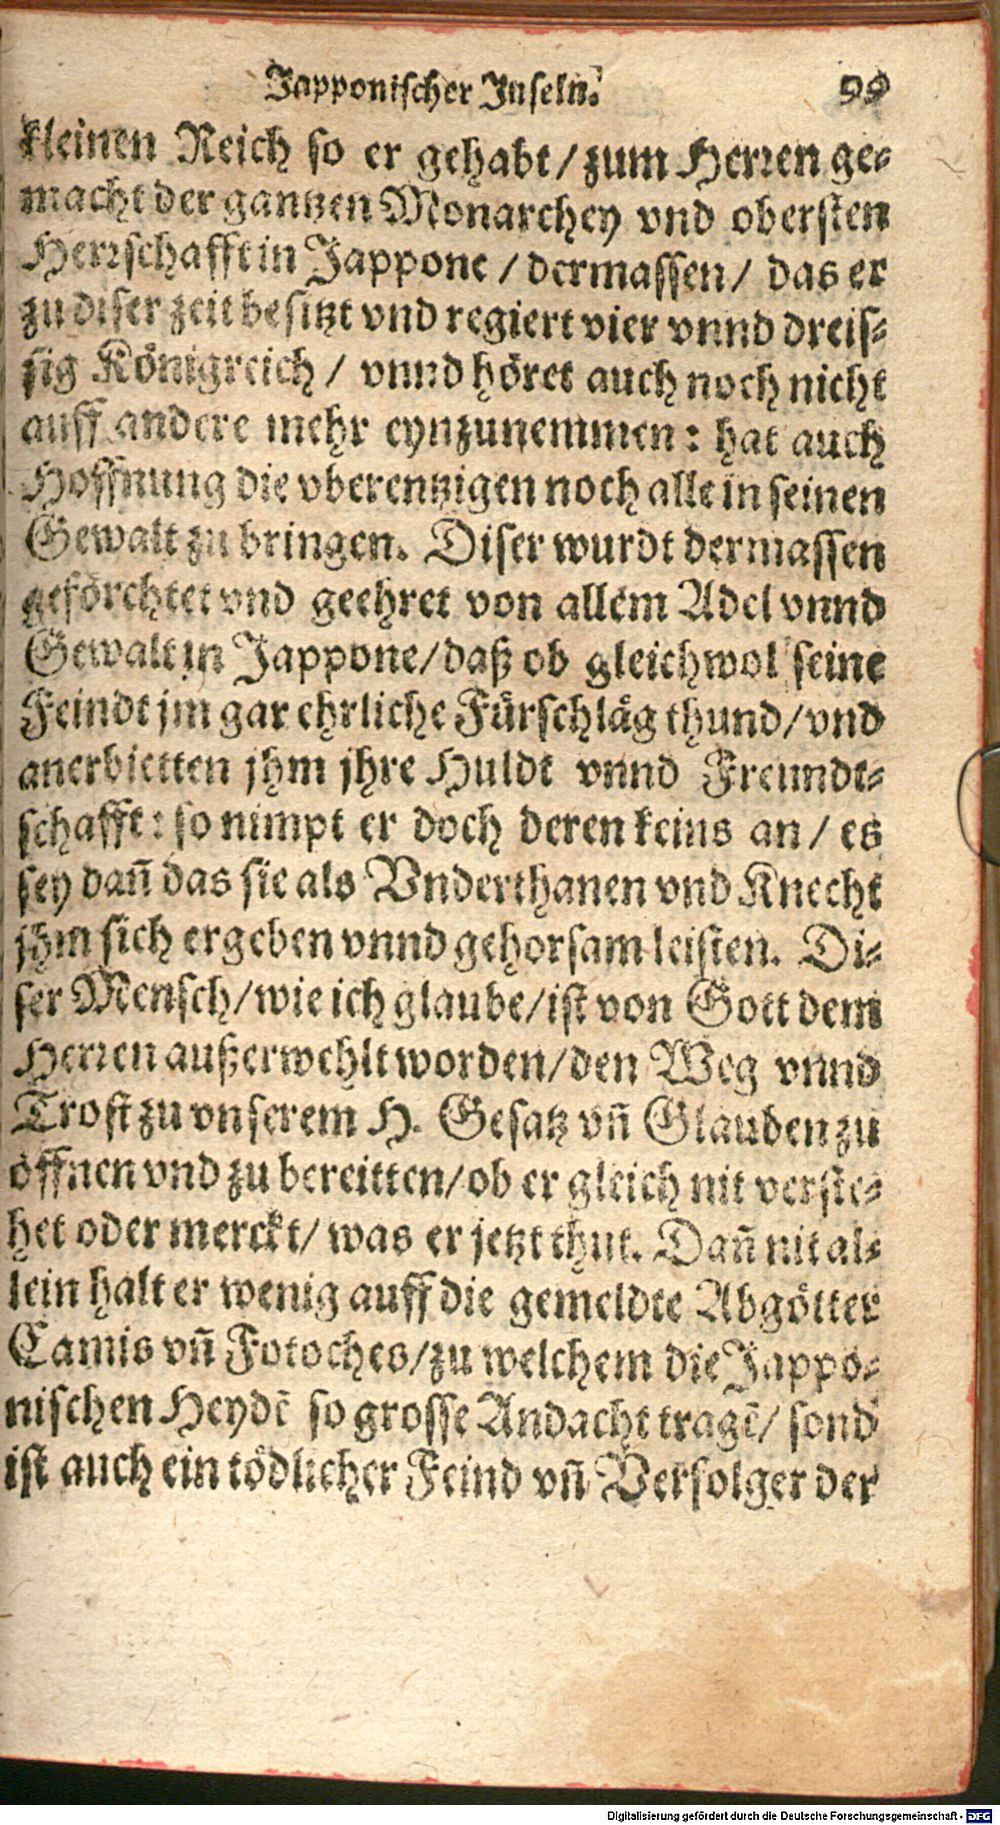 Japponischer Inseln. 99
kleinen Reich so er gehabt / zum Herren ge-
macht der gantzen Monarchey vnd obersten
Herrschafft in Jappone / dermassen / das er
zu diser zeit besitzt vnd regiert vier vnnd dreis-
sig Königreich / vnnd höret auch noch nicht
auff andere mehr eynzunemmen: hat auch
Hoffnung die vberentzigen noch alle in seinen
Gewalt zu bringen. Diser wurdt dermassen
geförchtet vnd geehret von allem Adel vnnd
Gewalt in Jappone/daß ob gleichwol seine
Feindt jm gar ehrliche Fürschläg thund/vnd
anerbietten jhm jhre Huldt vnnd Freundt-
schafft: so nimpt er doch deren keins an / es
sey dañ das sie als Vnderthanen vnd Knecht
jhm sich ergeben vnnd gehorsam leisten. Di-
ser Mensch/wie ich glaube/ist von Gott dem
Herren außerwehlt worden/den Weg vnnd
Trost zu vnserem H. Gesatz vñ Glauden zu
öffnen vnd zu bereitten/ob er gleich nit verste-
het oder merckt/ was er jetzt thut. Dañ nit al-
lein halt er wenig auff die gemeldte Abgötter
Camis vñ Fotoches/zu welchem die Jappo-
nischen Heydẽ so grosse Andacht tragẽ/ sond
ist auch ein tödlicher Feind vñ Verfolger der
Digitalisierung gefördert durch die Deutsche Forschungsgemeinschaft - DFG